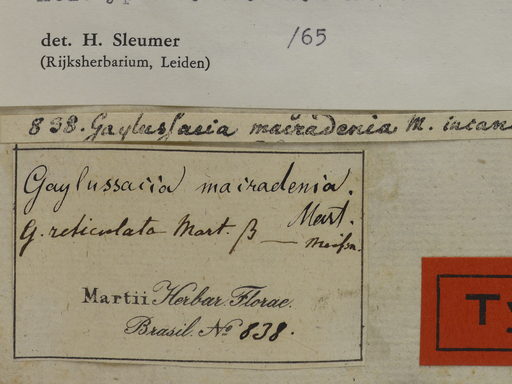 det. H. Sleumer /65
(Rijksherbarium, Leiden)
838. Gaylussacia macradenia M. incan
Gaylussacia macradenia.
Mart.
G. reticulata Mart. β — Meissn.
Martii Herbar. Florae
Brasil. No 838.
Ty